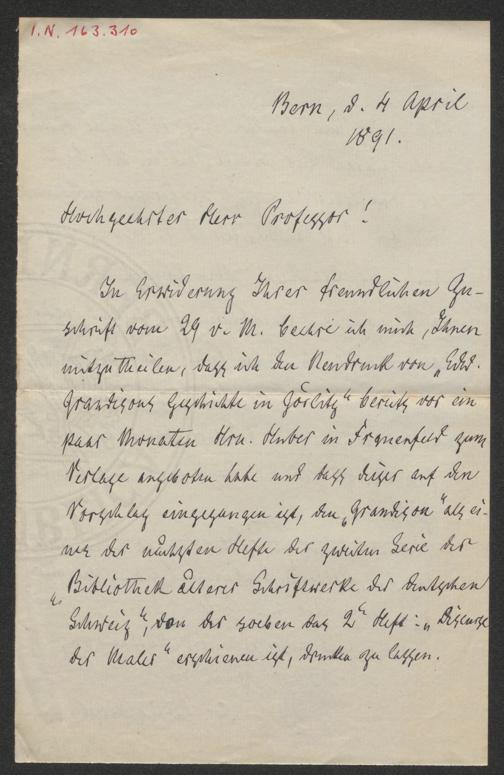 I.N. 163.310
Bern, d. 4 April
1891.
Hochgeehrter Herr Professor!
In Erwiderung Ihrer freundlichen Zu-
schrift vom 29 v. M. beehre ich mich, Ihnen
mitzutheilen, dass ich den Neudruck von „Edd.
Grandisons Geschichte in Görlitz“ bereits vor ein
paar Monaten Hrn. Huber in Frauenfeld zum
Verlage angeboten habe und dass dieser auf den
Vorschlag eingegangen ist, den „Grandison“ als ei-
nes der nächsten Hefte der zweiten Serie der
„Bibliothek älterer Schriftwerke der deutschen
Schweiz“, von der soeben das 2te Heft: „Discourse
der Maler“ erschienen ist, drucken zu lassen.